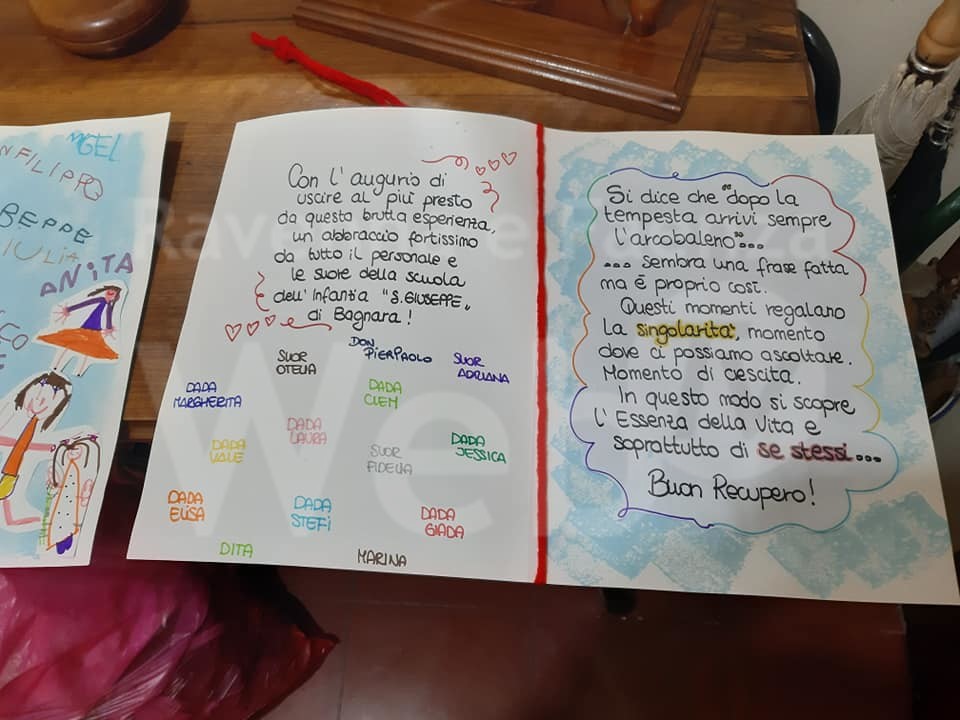 MGEL
FILIPPO
BEPPE
GIULIA
ANITA
Con l'augurio di
uscire al più presto
da questa brutta esperienza,
un abbraccio fortissimo
da tutto il personale e
le suore della scuola
dell'Infantia "S. GIUSEPPE"
di Bagnara!
SUOR
OTELIA
DON
PIERPAOLO
SUOR
ADRIANA
DADA
MARGHERITA
DADA
CLEM
DADA
LAURA
DADA
VALE
SUOR
FIDELIA
DADA
JESSICA
DADA
ELISA
DADA
STEFI
DADA
GIADA
DITA
MARINA
Si dice che "dopo la
tempesta arrivi sempre
l'arcobaleno"...
... sembra una frase fatta
ma è proprio così.
Questi momenti regalano
la singolarità, momento
dove ci possiamo ascoltare.
Momento di crescita.
In questo modo si scopre
l'Essenza della Vita e
soprattutto di se stessi...
Buon Recupero!